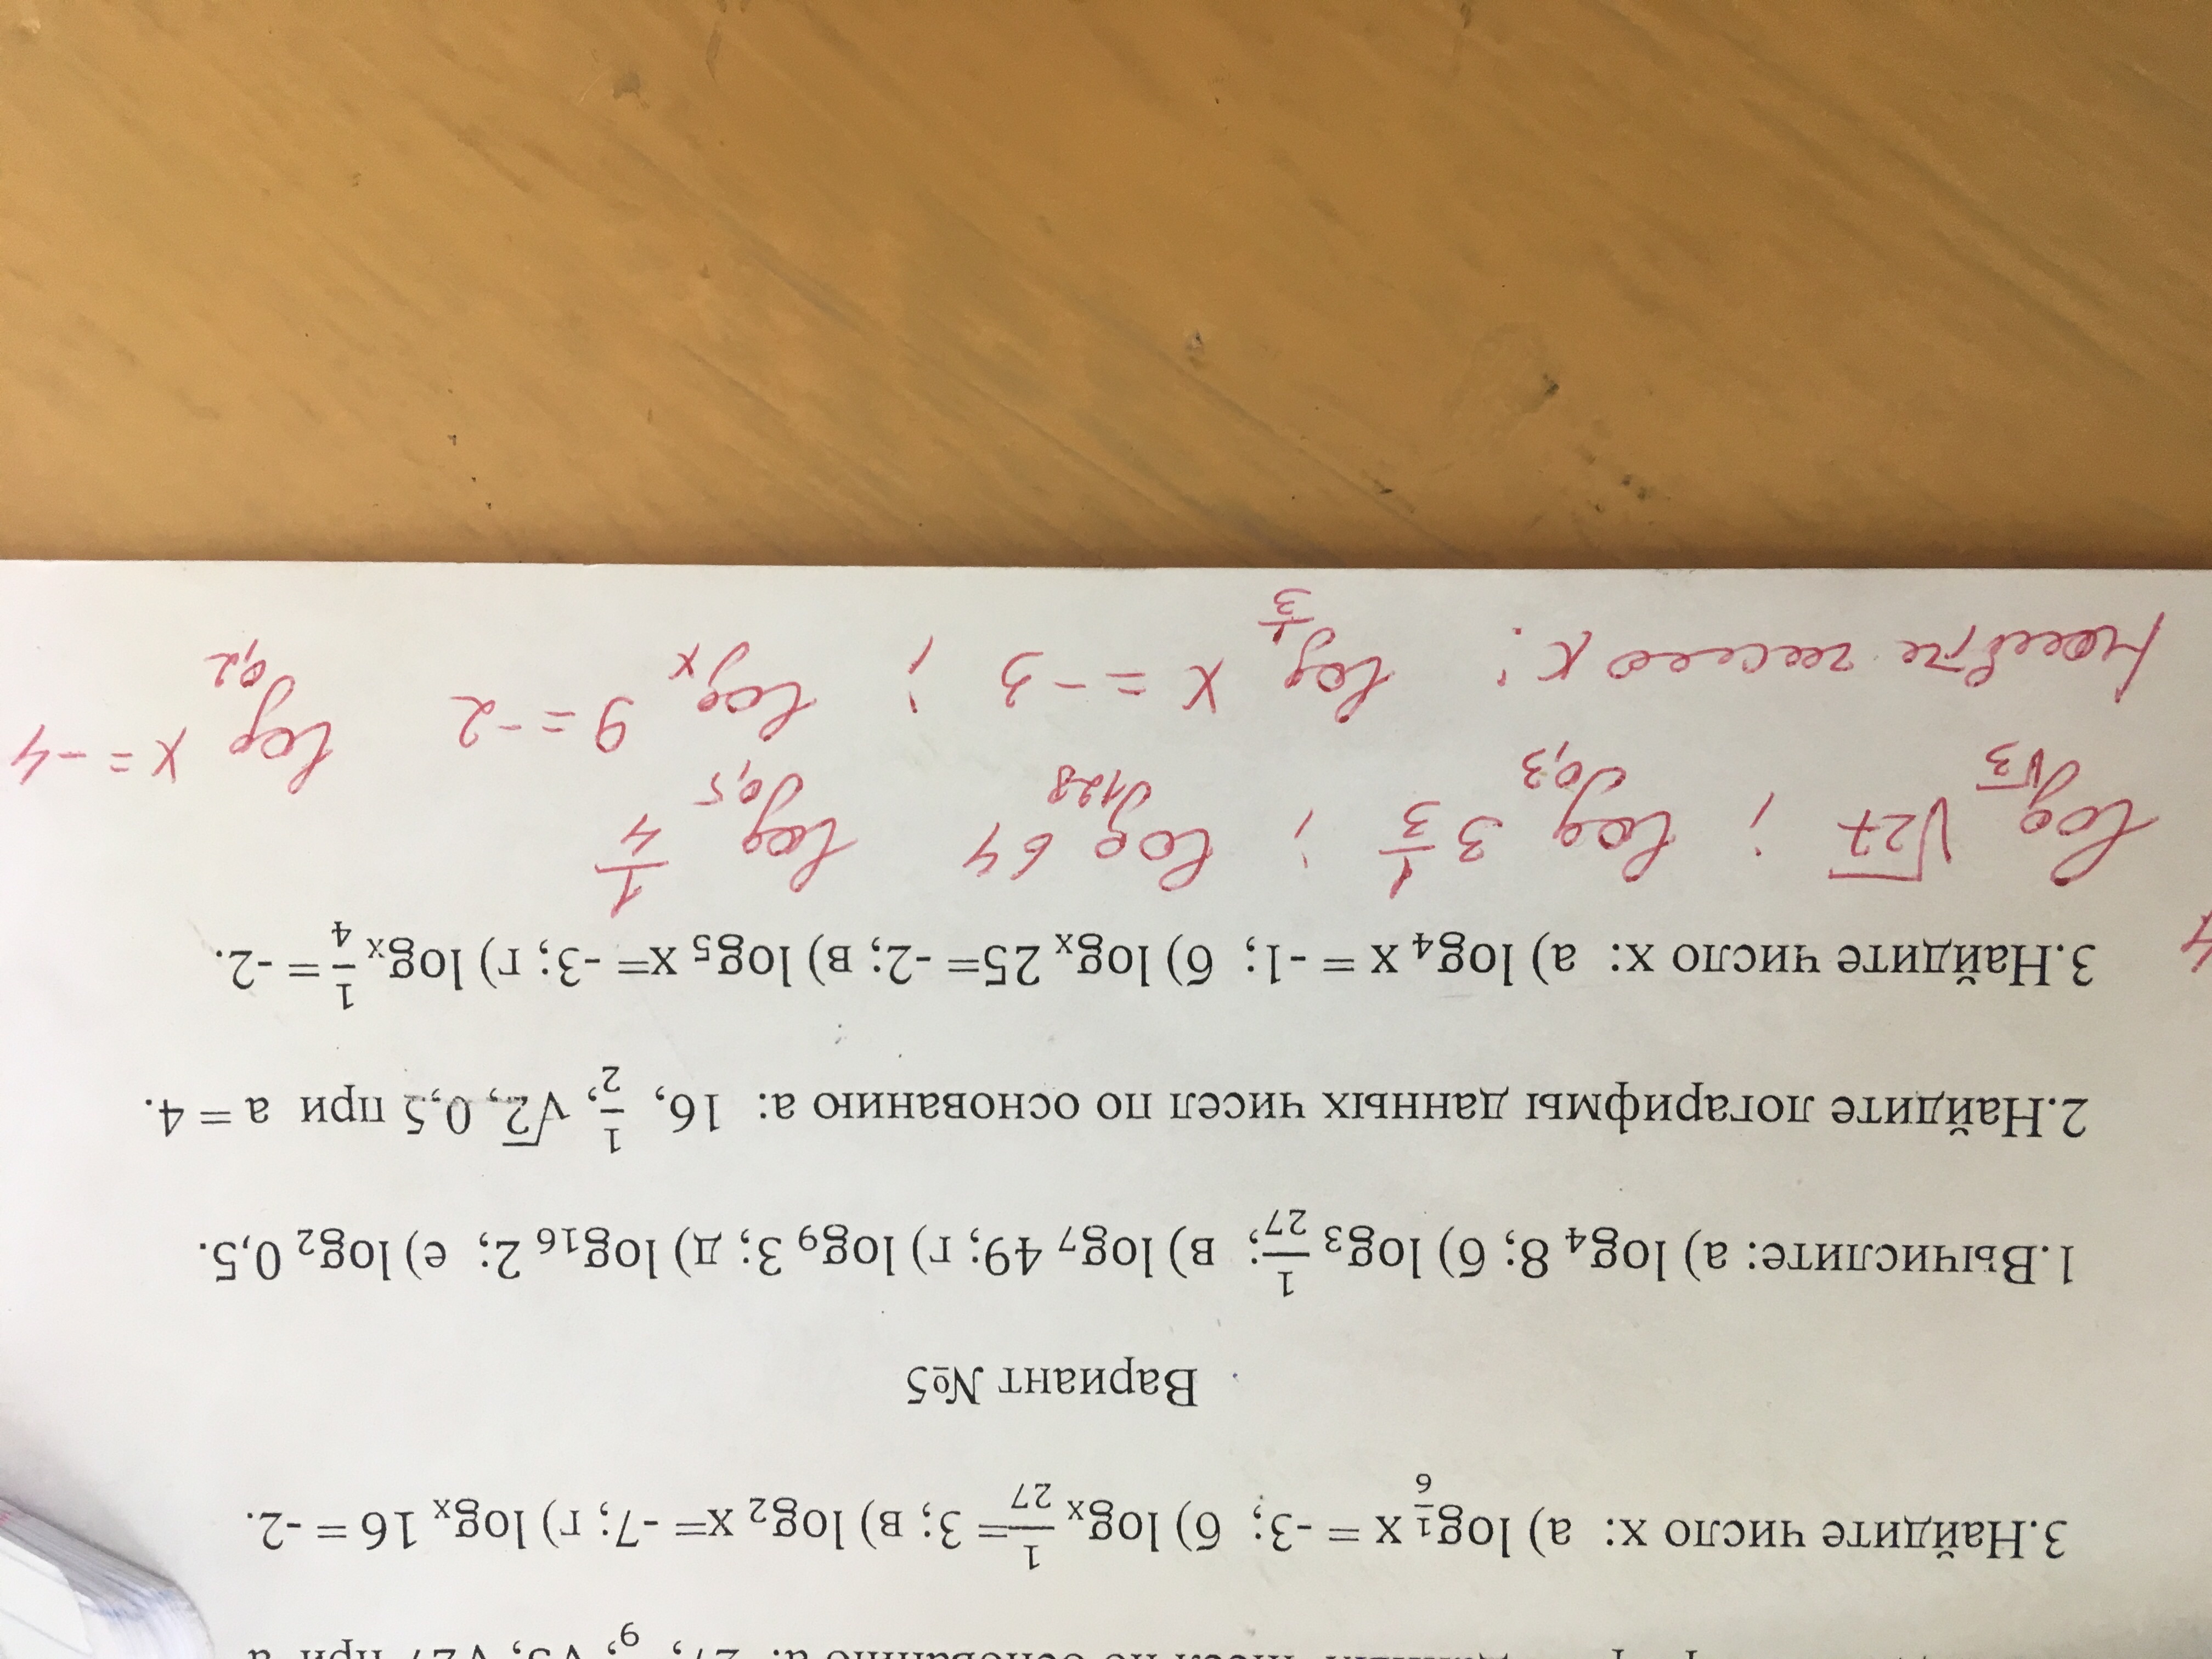 27, 9, √3, √27 при а
3.Найдите число х: а) log_{1/6} x = -3; б) log_x 1/27 = 3; в) log_2 x= -7; г) log_x 16 = -2.
Вариант №5
1.Вычислите: а) log_4 8; б) log_3 1/27; в) log_7 49; г) log_9 3; д) log_16 2; е) log_2 0,5.
2.Найдите логарифмы данных чисел по основанию а: 16, 1/2, √2, 0,5 при а = 4.
3.Найдите число х: а) log_4 x = -1; б) log_x 25= -2; в) log_5 x= -3; г) log_x 1/4 = -2.
4 log_{√3} √27 ; log_{0,3} 3 1/3 ; log_{128} 64 log_{0,5} 1/4
Найдите число х: log_{1/3} x = -3 ; log_x 9 = -2 log_{0,2} x = -4